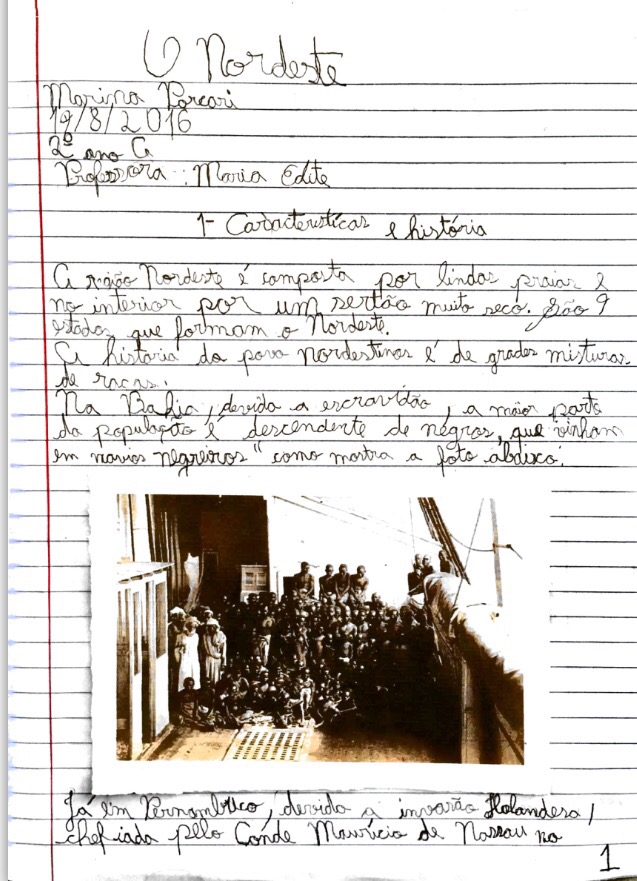 O Nordeste
Marina Porcari
19/8/2016
2º ano A
Professora : Maria Edite
1- Características e história
A região Nordeste é composta por lindas praias e
no interior por um sertão muito seco. São 9
estados que formam o Nordeste.
A história do povo nordestinos é de grades misturas
de raças.
Na Bahia, devido a escravidão, a maior parte
da população é descendente de negros, que vinham
em navios negreiros" como mostra a foto abaixo.
Já em Pernambuco, devido a invasão Holandesa,
chefiada pelo Conde Maurício de Nassau no
1